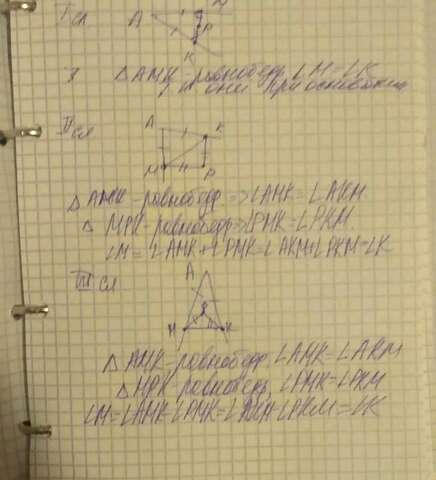 I сл
A
P
K
△ AMK - равнобедр. ∠M = ∠K
они при основании
II сл
A K
M P
△ AMK - равнобедр => ∠AMK = ∠AKM
△ MPK - равнобедр => ∠PMK = ∠PKM
∠M = ∠AMK + ∠PMK = ∠AKM + ∠PKM = ∠K
III сл
A
P
M K
△ AMK равнобедр. ∠AMK = ∠AKM
△ MPK равнобедр. ∠PMK = ∠PKM
∠M = ∠AMK - ∠PMK = ∠AKM - ∠PKM = ∠K